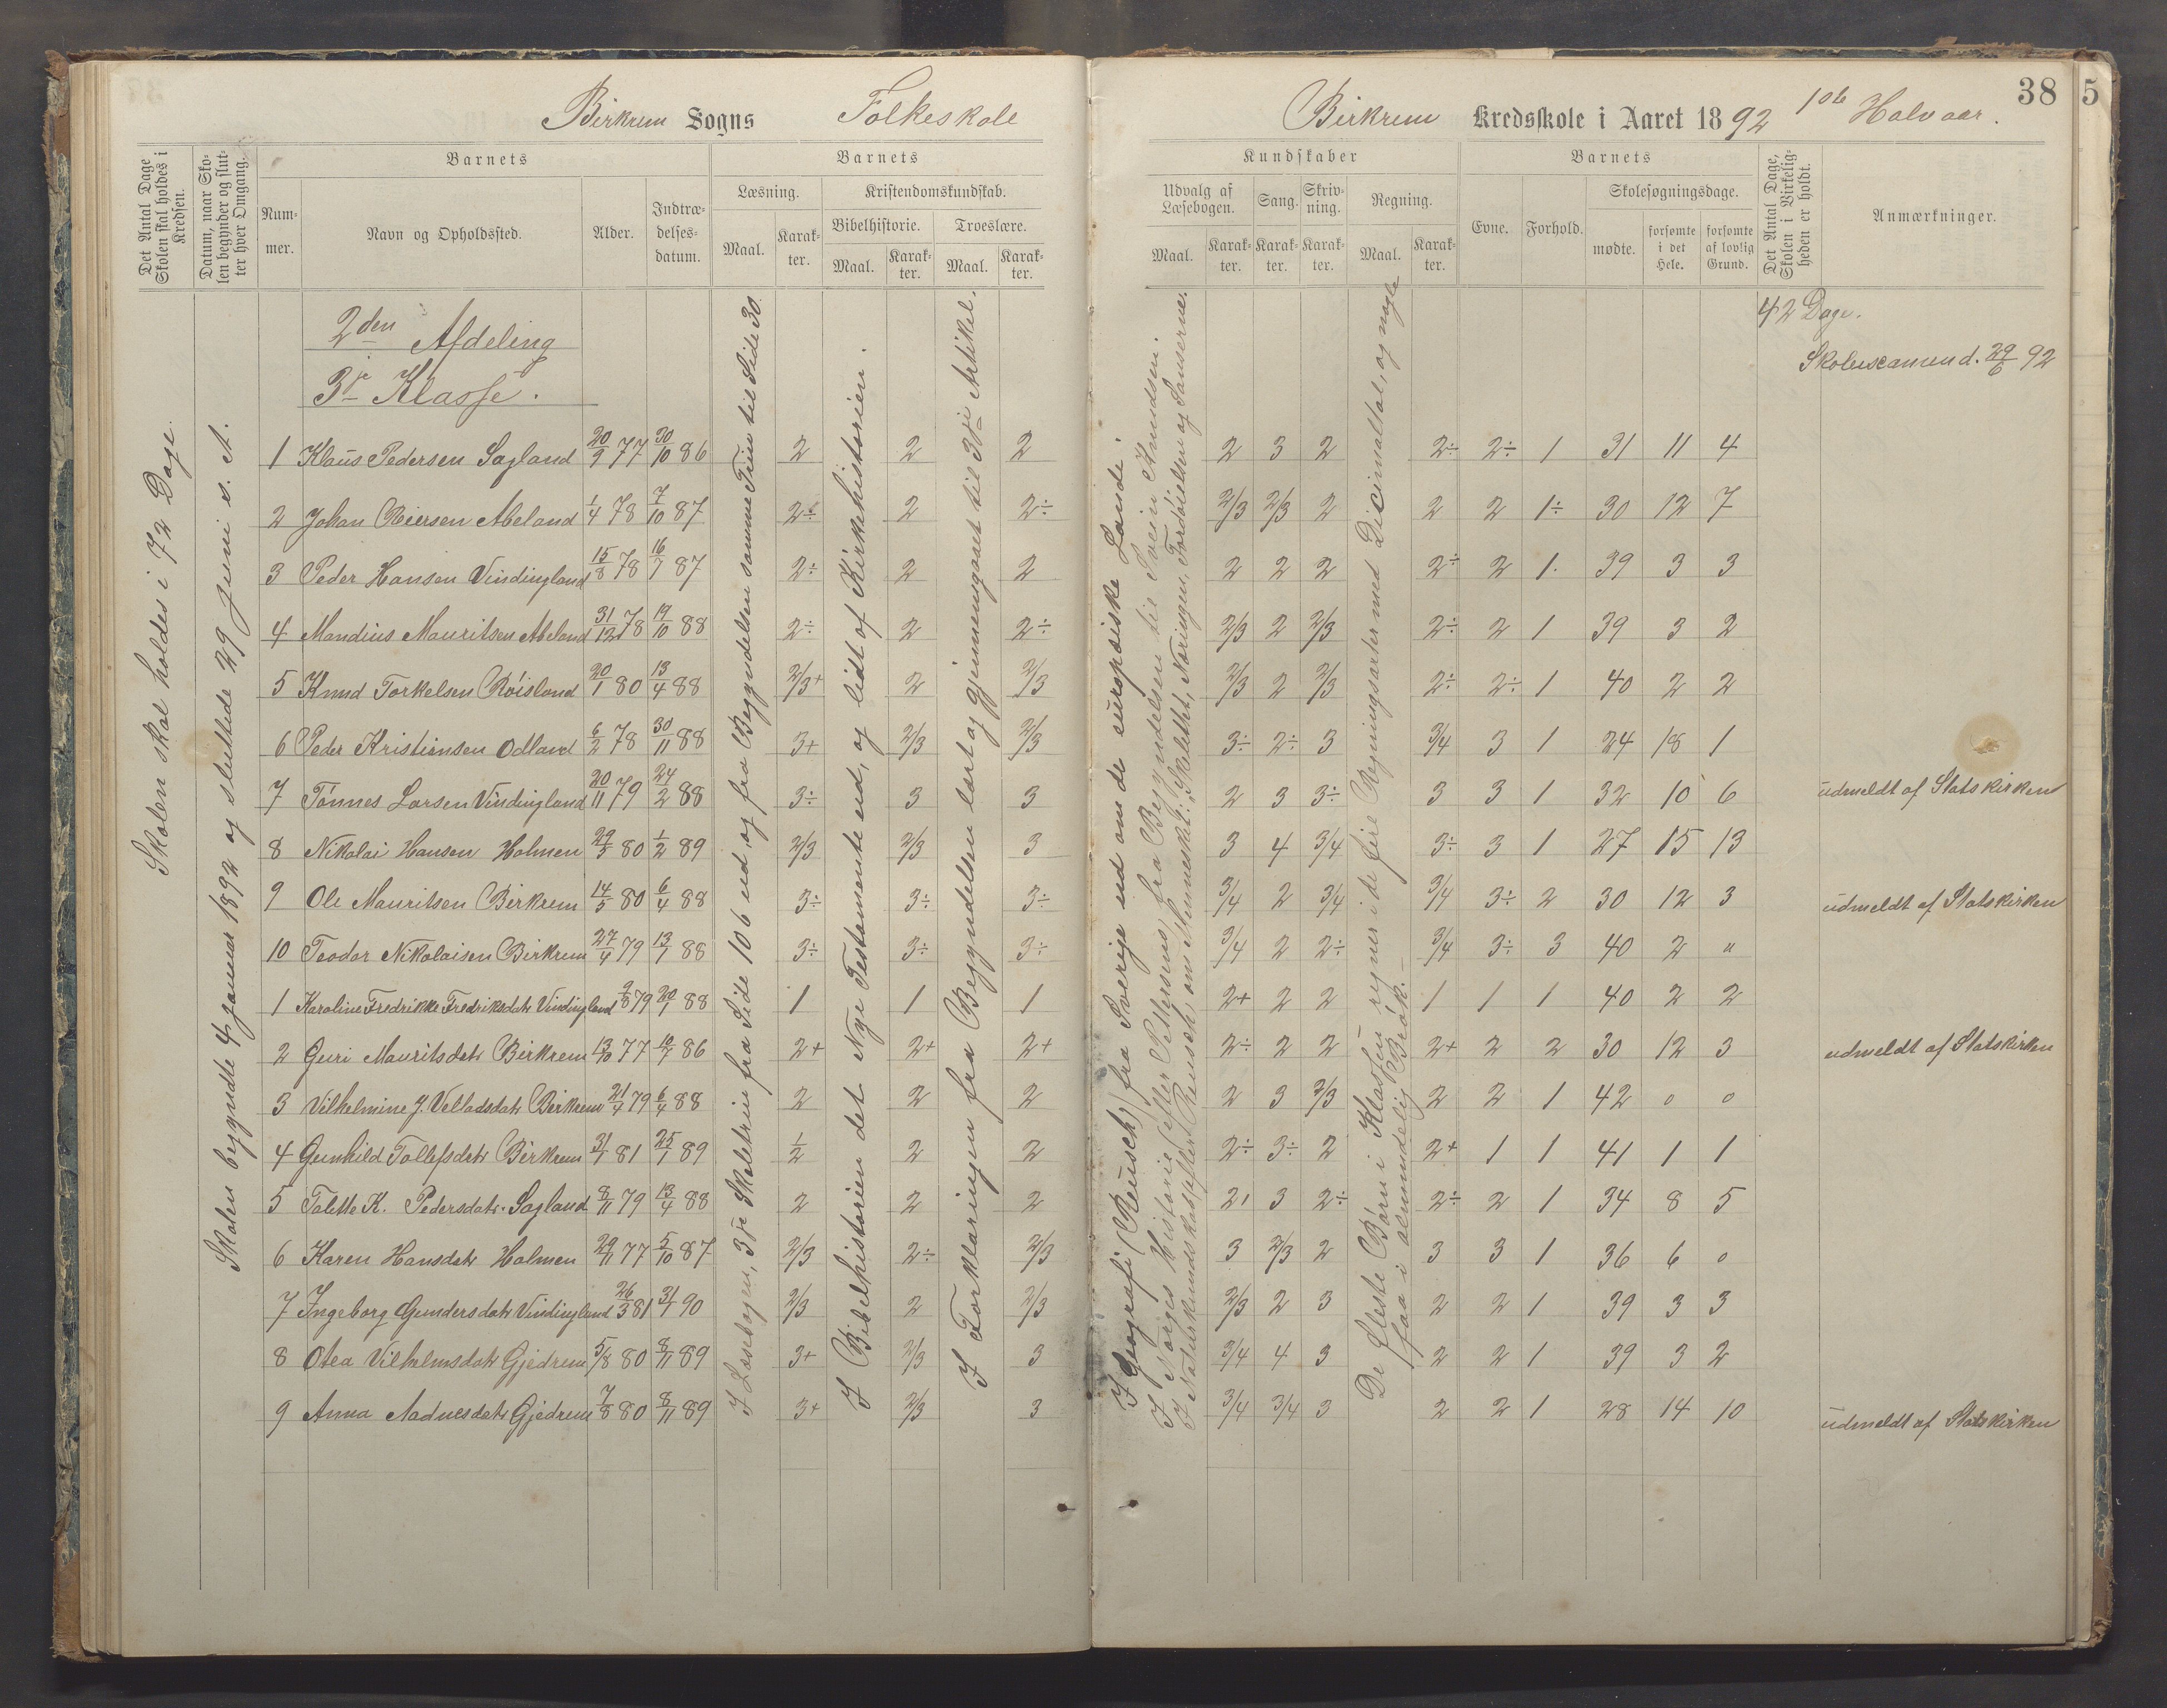 Birkrem Sogns Folkeskole
Det Antal Dage Skolen skal holdes i Kredsen.
Datum, naar Skolen begynder og slutter hver Omgang.
Barnets
Nummer.
Navn og Opholdssted.
Alder.
Indtrædelsesdatum.
Barnets
Læsning.
Maal.
Karakter.
Kristendomskundskab.
Bibelhistorie.
Maal.
Karakter.
Troeslære.
Maal.
Karakter.
Skolen skal holdes i 72 Dage.
Skolen begyndte 4 januar 1892 og sluttede 29 juni s. A.
2den Afdeling
3je Klasse.
I Læsebogen, 3je Skoletrin fra Side 106 ud, og fra Begyndelsen samme Trin til Side 30.
I Bibelhistorien det Nye Testamente ud, og lidt af Kirkehistorien.
I Forklaringen fra Begyndelsen lært og gjennemgaaet til 3dje Artikel.
1 Klaus Pedersen Sagland 20/9 77 30/10 86 2 2 2
2 Johan Reiersen Abeland 1/4 78 7/10 87 2÷ 2 2÷
3 Peder Hansen Vindingland 15/8 78 16/7 87 2÷ 2 2
4 Mandius Mauritsen Abeland 31/12 78 19/10 88 2÷ 2 2÷
5 Knud Torkelsen Røisland 20/1 80 13/4 88 2/3+ 2 2/3
6 Peder Kristiensen Odland 6/2 78 30/11 88 3+ 2/3 2/3
7 Tønnes Larsen Vindingland 20/11 79 24/2 88 3÷ 3 3
8 Nikolai Hansen Holmen 29/3 80 1/2 89 2/3 2/3 3
9 Ole Mauritsen Birkrem 14/5 80 6/4 88 3÷ 3÷ 3÷
10 Teodor Nikolaisen Birkrem 27/4 79 13/7 88 3÷ 3÷ 3÷
1 Karoline Fredrikke Fredriksdatr Vindingland 9/8 79 20/7 88 1 1 1
2 Guri Mauritsdatr Birkrem 13/10 77 10/7 86 2+ 2+ 2+
3 Vilhelmine J. Velladsdatr Birkrem 21/4 79 6/4 88 2 2 2
4 Gunhild Tollefsdatr Birkrem 31/1 81 25/1 89 1/2 2 2
5 Talette K. Pedersdatr. Sagland 8/11 79 13/4 88 2 2 2
6 Karen Hansdatr Holmen 29/11 77 5/10 87 2/3 2÷ 2/3
7 Ingeborg Gundersdatr Vindingland 26/3 81 31/1 90 2/3 2 2/3
8 Otea Vilhelmsdatr Gjedrem 5/8 80 8/11 89 3+ 2/3 3
9 Anna Aadnesdatr Gjedrem 7/8 80 8/11 89 3+ 2/3 3
38
5
Birkrem Kredsskole i Aaret 1892 1ste Halvaar.
Kundskaber
Udvalg af Læsebogen.
Maal.
Karakter.
Sang.
Karakter.
Skrivning.
Karakter.
Regning.
Maal.
Karakter.
Barnets
Evne.
Forhold.
Skolesøgningsdage.
mødte.
forsømte i det Hele.
forsømte af lovlig Grund.
Det Antal Dage, Skolen i Virkeligheden er holdt.
Anmærkninger.
42 Dage.
Skoleexamen d. 29/6 92
I Geografi (Reusch) fra Sverige ud om de europæiske Lande.
I Norges Historie (efter Pettersens) fra Begyndelsen til Svein Knudsen.
I Naturkundskab (efter Reusch) om Mennesket: Skelettet, Næringen, Fordøielsen og Sanserne.
De fleste Børn i Klassen regner i de fire Regningsarter med Decimaltal, og nogle faa i almindelig Brøk.
2 3 2 2÷ 2÷ 1 31 11 4
2/3 2/3 2 2 2 1÷ 30 12 7
2 2 2 2÷ 2 1. 39 3 3
2/3 2 2/3 2÷ 2 1 39 3 2
2/3 2 2/3 2÷ 2÷ 1 40 2 2
3÷ 2÷ 3 3/4 3 1 24 18 1
2 3 3÷ 3 3 1 32 10 6 udmeldt af Statskirken
3 4 3/4 3÷ 3 1 27 15 13
3/4 2 3/4 3/4 3÷ 2 30 12 3 udmeldt af Statskirken
3/4 2 2÷ 3/4 3÷ 3 40 2 "
2+ 2 2 1 1 1 40 2 2
2÷ 2 2 2+ 2 2 30 12 3 udmeldt af Statskirken
2 3 2/3 2 2 1 42 0 0
2÷ 3÷ 2 2+ 1 1 41 1 1
2 3 2÷ 2÷ 2 1 34 8 5
3 2/3 2 3 3 1 36 6 0
2/3 2 3 2 2 1 39 3 3
3/4 4 3 2 2 1 39 3 2
3/4 3/4 3 2 2 1 28 14 10 udmeldt af Statskirken